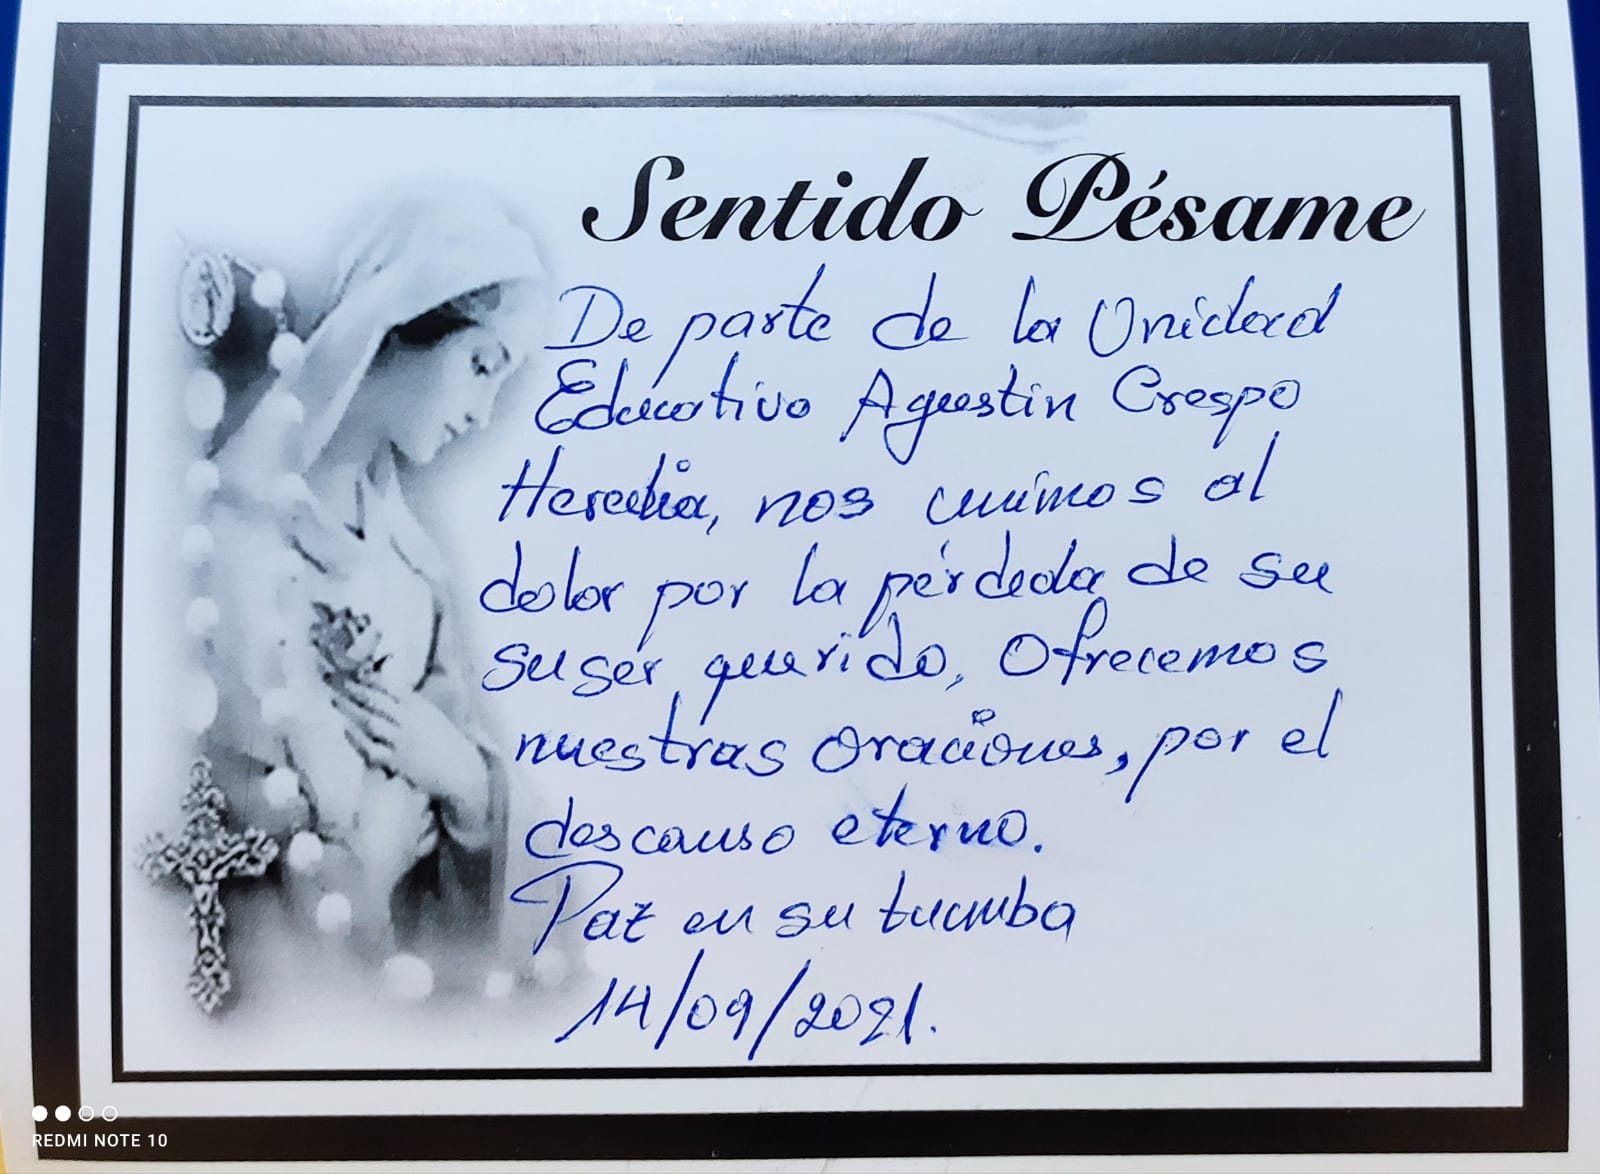 Sentido Pésame
De parte de la Unidad
Educativo Agustin Crespo
Heredia, nos unimos al
dolor por la pérdida de su
su ser querido, Ofrecemos
nuestras oraciones, por el
descanso eterno.
Paz en su tumba
14/09/2021.
REDMI NOTE 10